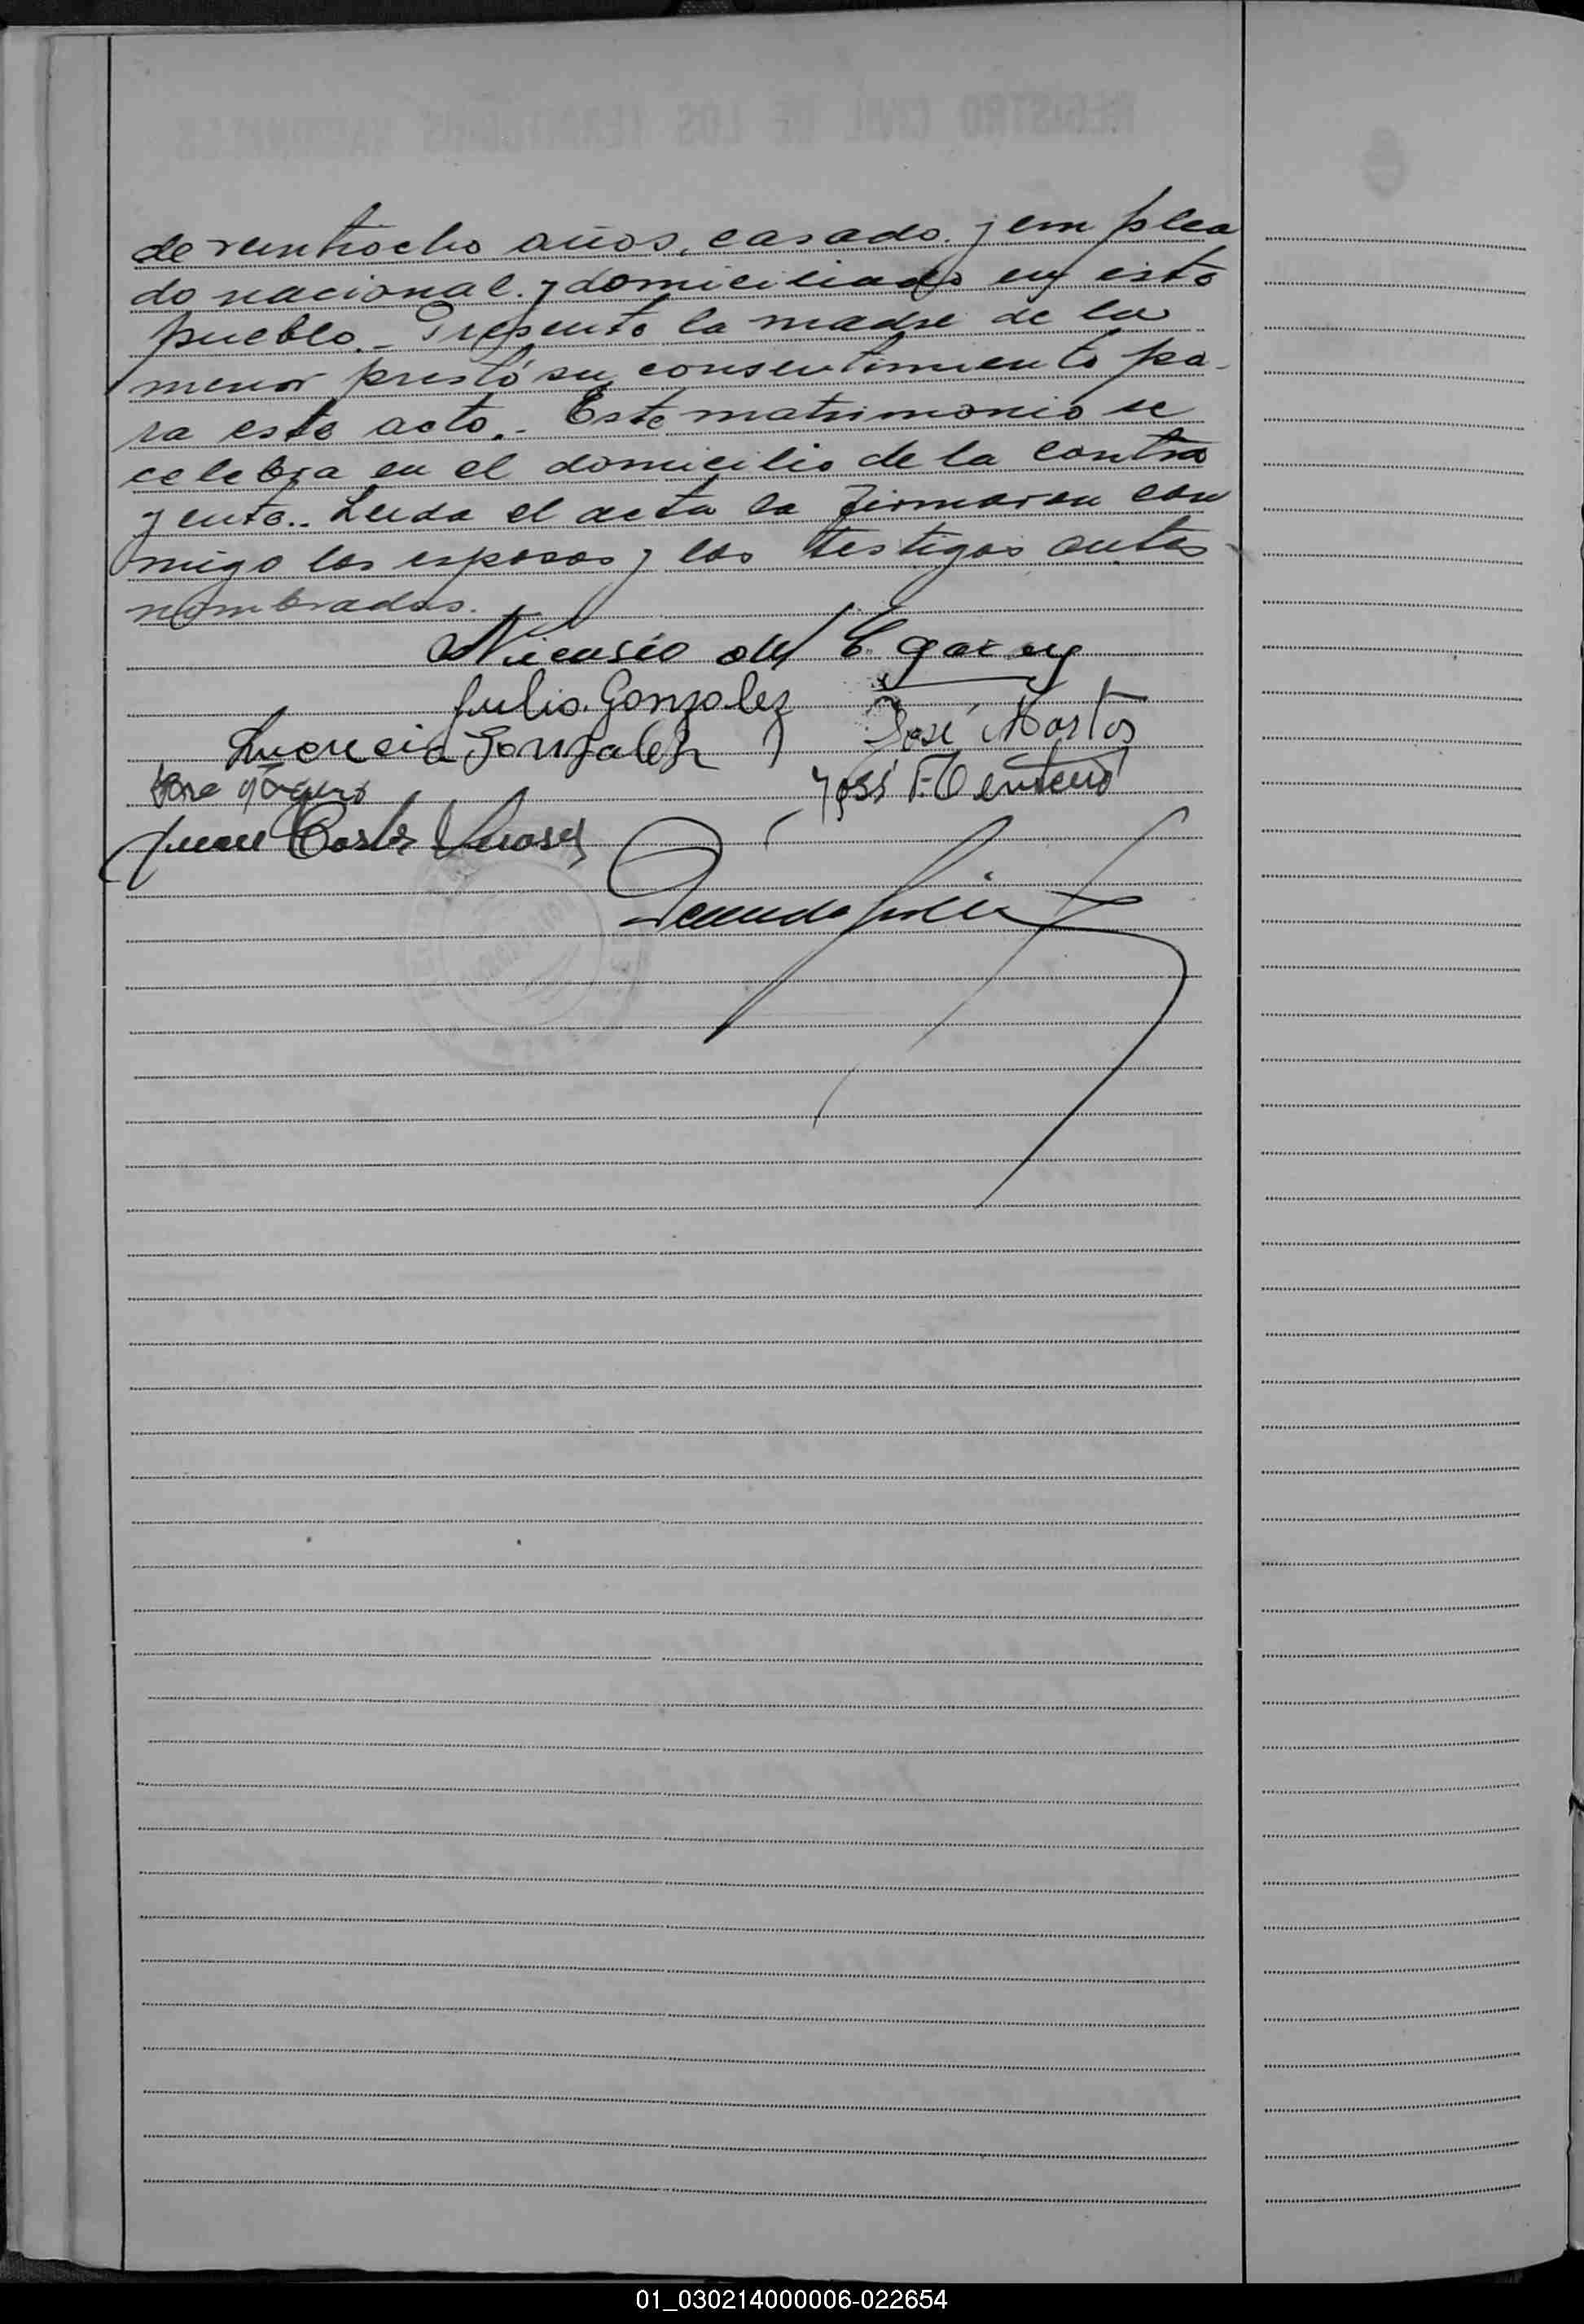 de veintiocho años, casado. y emplea
do nacional. y domiciliado en este
pueblo.- Presente la madre de la
menor prestó su consentimiento pa-
ra este acto.- Este matrimonio se
celebra en el domicilio de la contra
yente.. Leida el acta la firmaron con
migo los esposos y los testigos antes
nombrados.
Nicasio del C. garay
Julio Gonzalez José Mastos
Lucrecia Gonzalez
Jose José F.
Juan Carlos
01_030214000006-022654